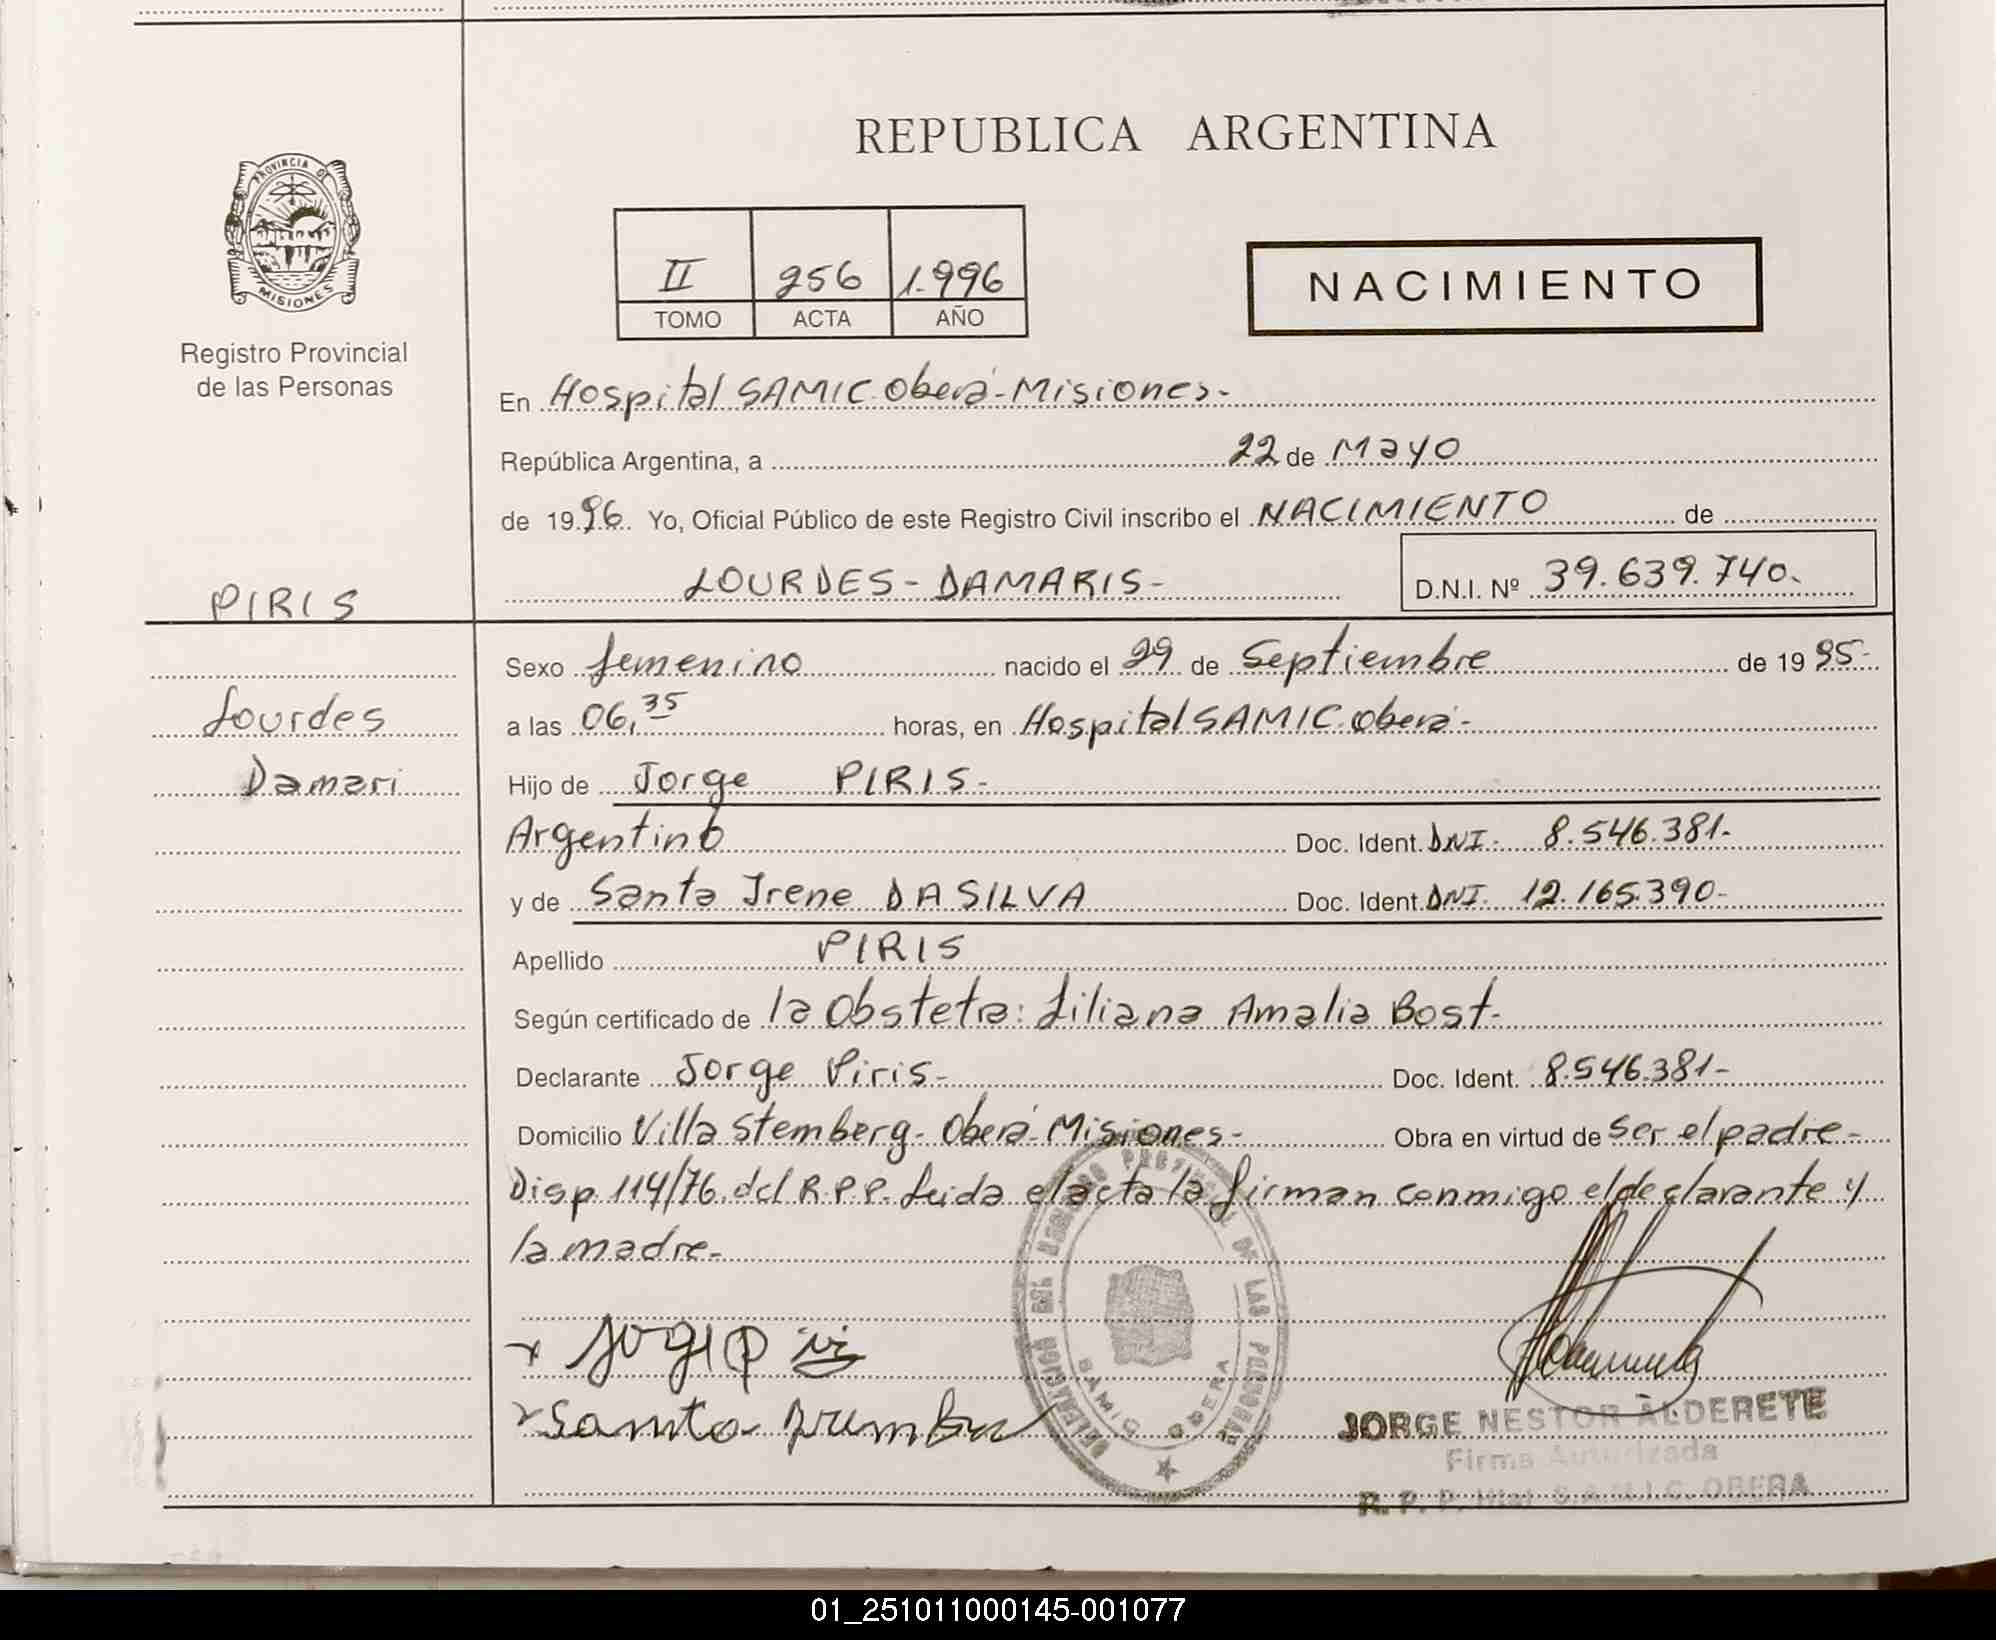 REPUBLICA ARGENTINA
PROVINCIA DE
MISIONES
Registro Provincial
de las Personas
II 256 1.996
TOMO ACTA AÑO
NACIMIENTO
En Hospital SAMIC Oberá-Misiones-
República Argentina, a 22 de Mayo
de 1996. Yo, Oficial Público de este Registro Civil inscribo el NACIMIENTO de
LOURDES-DAMARIS-
D.N.I. Nº 39.639.740.
PIRIS
Lourdes
Damari
Sexo femenino nacido el 29 de Septiembre de 1995-
a las 06,35 horas, en Hospital SAMIC Oberá-
Hijo de Jorge PIRIS-
Argentino Doc. Ident. DNI- 8.546.381-
y de Santa Irene DA SILVA Doc. Ident. DNI. 12.165.390-
Apellido PIRIS
Según certificado de la Obsteta: Liliana Amalia Bost-
Declarante Jorge Piris- Doc. Ident. 8.546.381-
Domicilio Villa Stemberg- Oberá-Misiones- Obra en virtud de Ser el padre-
Disp 114/76. del R.P.P. Leida el acta la firman conmigo el declarante y
la madre-
DELEGACION DEL REGISTRO PROVINCIAL DE LAS PERSONAS
SAMIC OBERA
JORGE NESTOR ALDERETE
Firma Autorizada
R. P. P. Htal S.A.M.I.C. OBERA
01_251011000145-001077